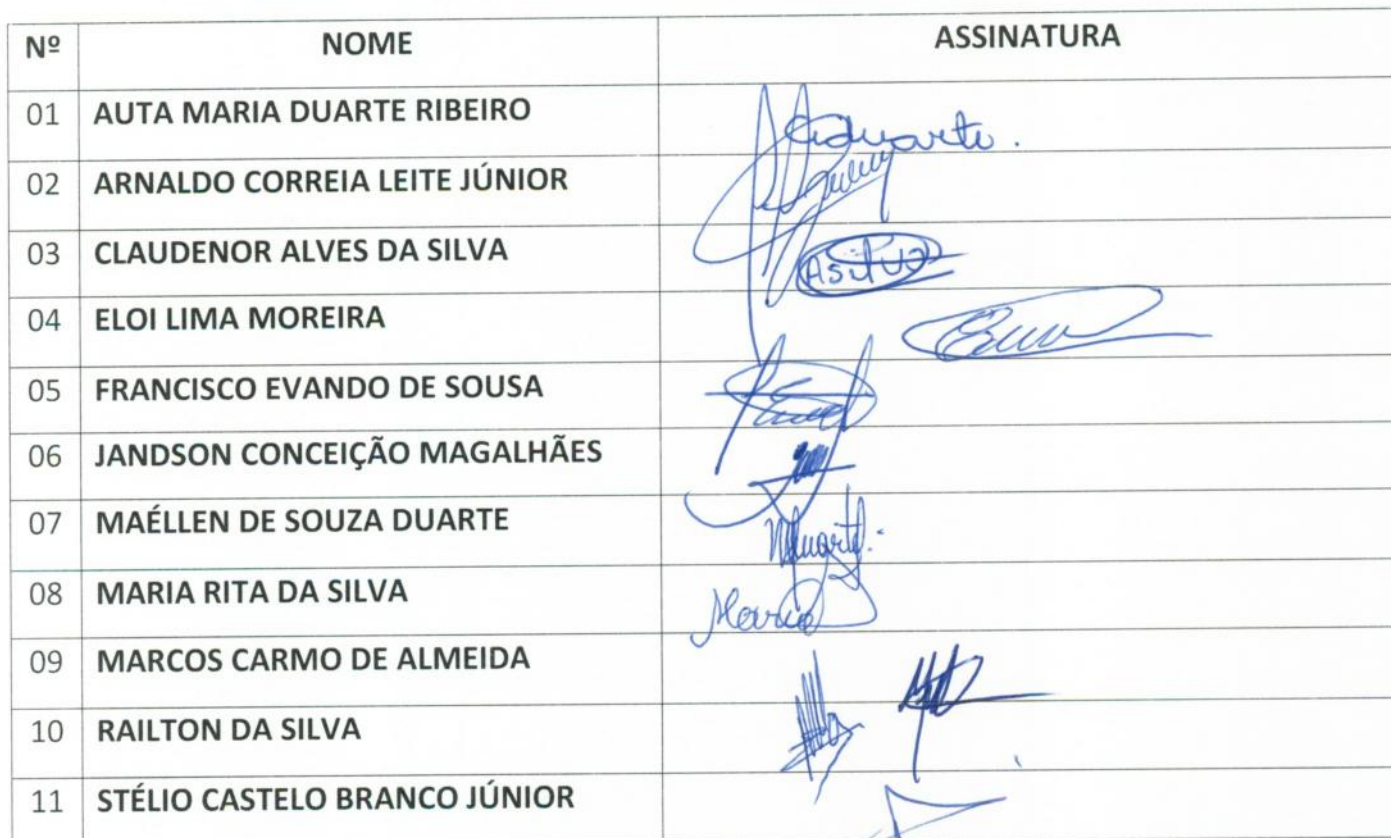 Nº NOME ASSINATURA
01 AUTA MARIA DUARTE RIBEIRO Aduarte.
02 ARNALDO CORREIA LEITE JÚNIOR
03 CLAUDENOR ALVES DA SILVA ASilva
04 ELOI LIMA MOREIRA
05 FRANCISCO EVANDO DE SOUSA
06 JANDSON CONCEIÇÃO MAGALHÃES
07 MAÉLLEN DE SOUZA DUARTE MDuarte.
08 MARIA RITA DA SILVA Maria
09 MARCOS CARMO DE ALMEIDA
10 RAILTON DA SILVA
11 STÉLIO CASTELO BRANCO JÚNIOR